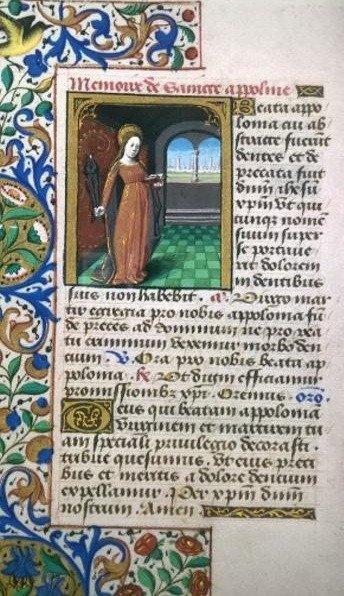 Memoire de Saincte appoline
Beata appo
lonia cui ab
stracte fuerūt
dentes et de
precata fuit
dn̄m ihesu
xp̄m vt qui
cunqȝ nomē
suum super
se portaue
rit dolorem
in dentibus
suis non habebit . a. Virgo mar
tir egregia pro nobis appolonia fū
de preces ad dominum ne pro rea
tu criminum vexemur morbo den
cium . V. Ora pro nobis beata ap
polonia . Vt digni efficiamur
promissionibꝫ xp̄i . Oremus . oro
Deus qui beatam appoloniā
virginem et martirem tu
am speciali priuilegio decorasti .
tribue quesumus . Vt eius preci
bus et meritis a dolore dencium
expellamur . Per xp̄m dn̄m
nostrum . Amen